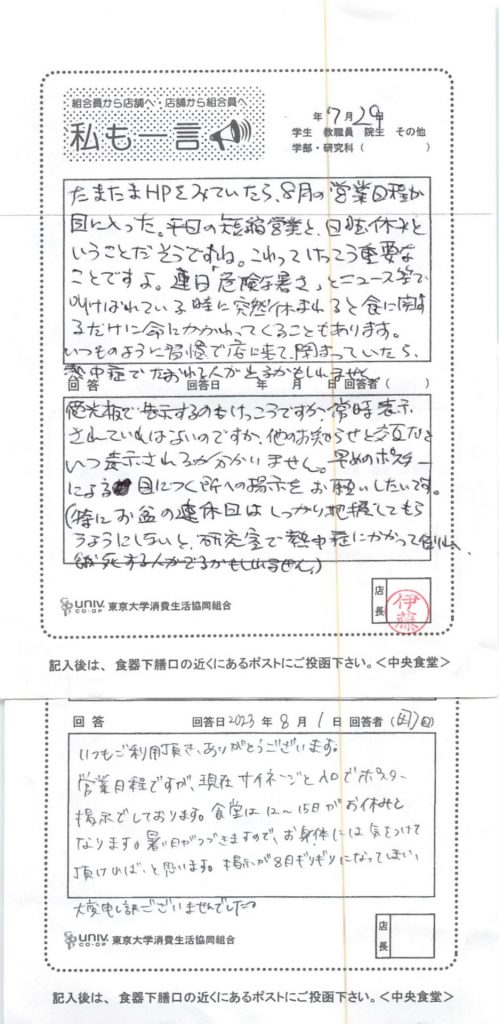 組合員から店舗へ・店舗から組合員へ
私も一言
年 7月 29日
学生 教職員 院生 その他
学部・研究科( )
たまたまHPをみていたら、8月の営業日程が
目に入った。平日の短縮営業と、日祝休みと
いうことだそうですね。これってけっこう重要な
ことですよ。連日「危険な暑さ」とニュース等で
叫ばれている時に突然休まれると食に関す
るだけに命にかかわってくることもあります。
いつものように習慣で店に来て、閉まっていたら、
熱中症でたおれる人が出るかもしれません
回 答 回答日 年 月 日 回答者( )
蛍光板で告示するのもけっこうですが、常時表示
されていればよいのですが、他のお知らせと交互だと
いつ表示されるか分かいません。早めのポスター
による 目につく所への掲示をお願いしたいです。
(特にお盆の連休日はしっかり把握してもら
うようにしないと、研究室で熱中症にかかって
餓死する人がでるかもしれません。)
UNIV. CO-OP 東京大学消費生活協同組合
店長
伊藤
記入後は、食器下膳口の近くにあるポストにご投函下さい。<中央食堂>
回 答 回答日 2023 年 8 月 1 日 回答者( )
いつもご利用頂き、ありがとうございます。
営業日程ですが、現在サイネージと入口でポスター
掲示でしております。食堂は12〜15日がお休みと
なります。暑い日がつづきますので、お身体には気をつけて
頂ければ、と思います。掲示が8月ギリギリになってしまい、
大変申し訳ございませんでした。
UNIV. CO-OP 東京大学消費生活協同組合
店長
記入後は、食器下膳口の近くにあるポストにご投函下さい。<中央食堂>